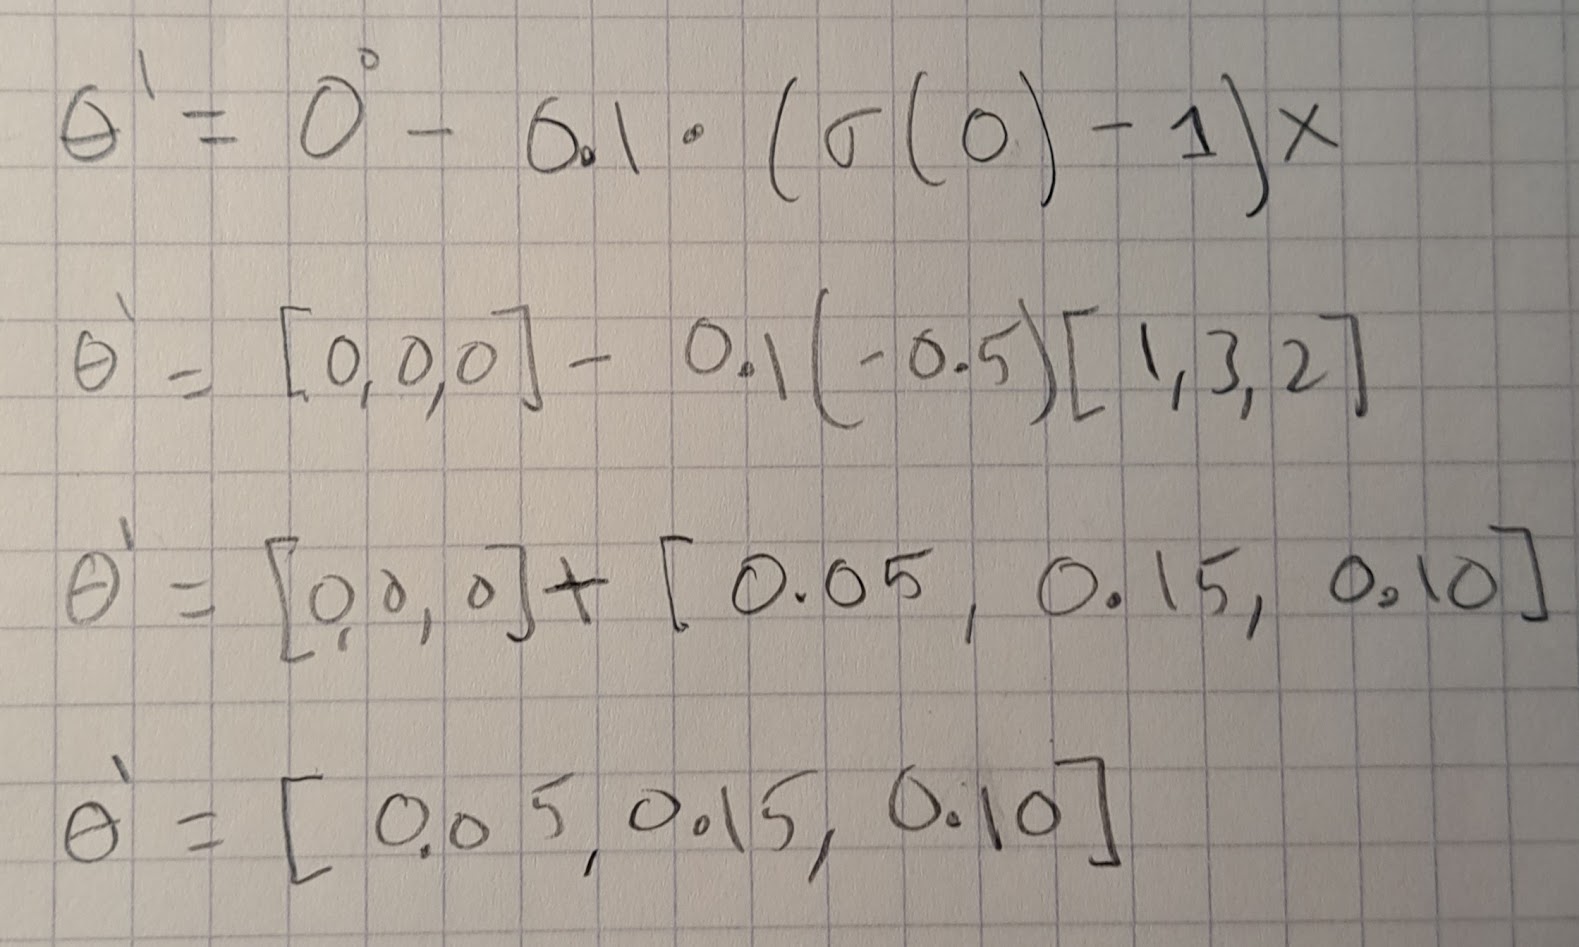 θ¹ = 0⁰ - 0.1 · (σ(0) - 1)x
θ¹ = [0,0,0] - 0.1(-0.5)[1,3,2]
θ¹ = [0,0,0] + [0.05, 0.15, 0.10]
θ¹ = [0.05, 0.15, 0.10]